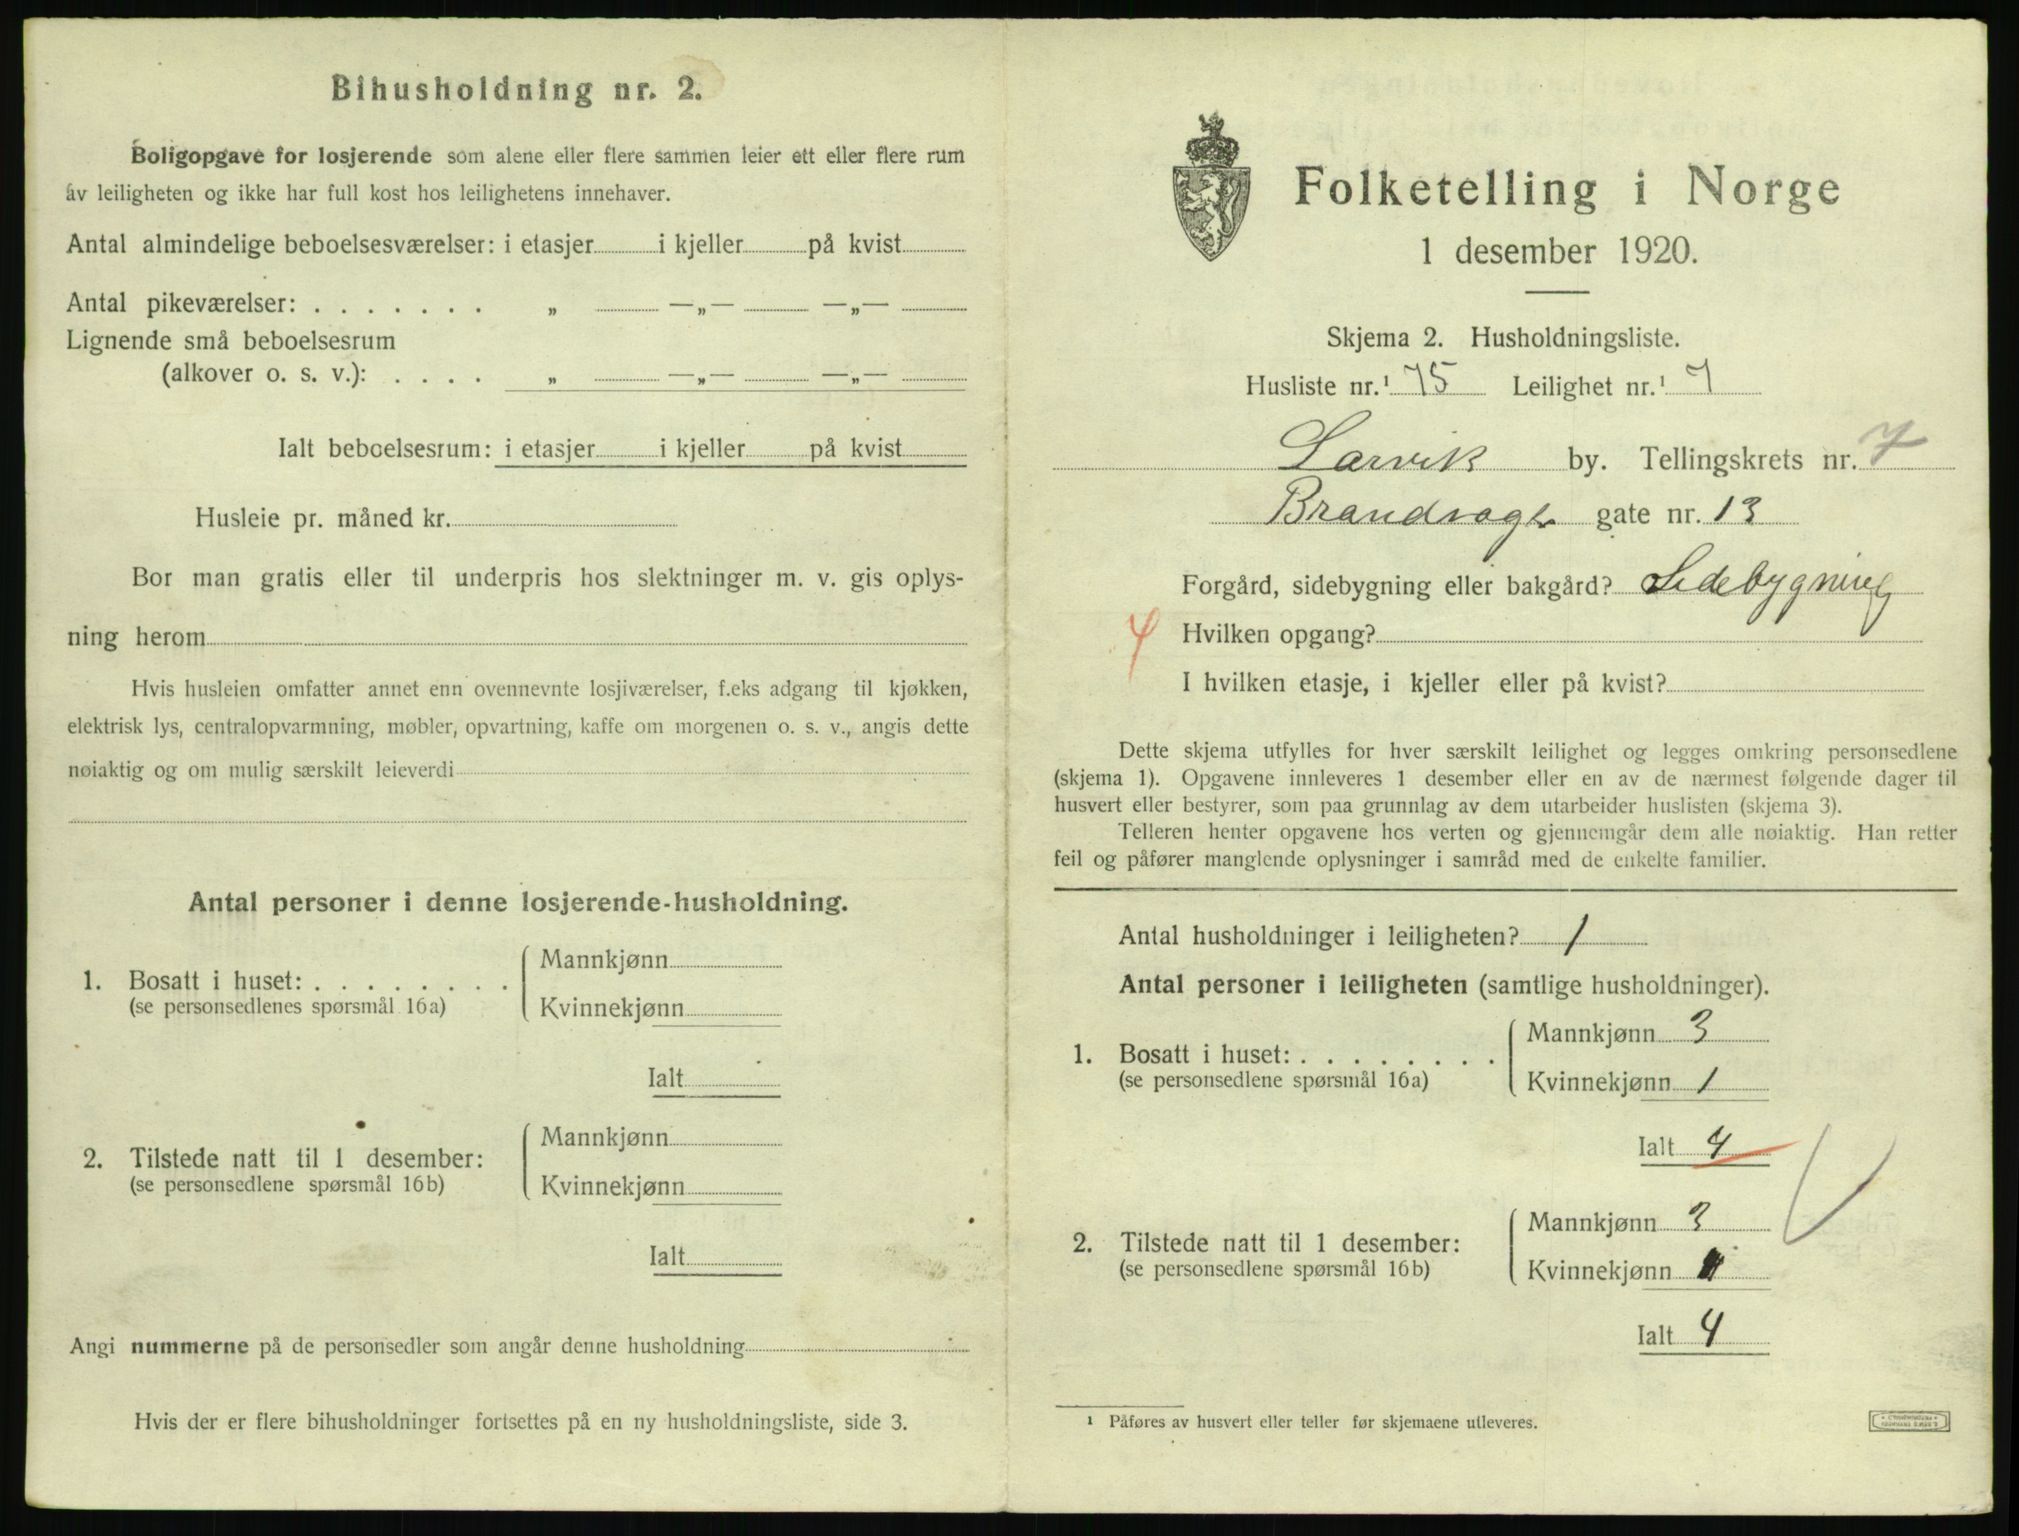 Bihusholdning nr. 2.
Boligopgave for losjerende som alene eller flere sammen leier ett eller flere rum
av leiligheten og ikke har full kost hos leilighetens innehaver.
Antal almindelige beboelsesværelser: i etasjer i kjeller på kvist
Antal pikeværelser: . . . . . . . „ —„— —„—
Lignende små beboelsesrum
(alkover o. s. v.): . . . . „ —„— —„—
Ialt beboelsesrum: i etasjer i kjeller på kvist
Husleie pr. måned kr.
Bor man gratis eller til underpris hos slektninger m. v. gis oplys-
ning herom
Hvis husleien omfatter annet enn ovennevnte losjiværelser, f.eks adgang til kjøkken,
elektrisk lys, centralopvarmning, møbler, opvartning, kaffe om morgenen o. s. v., angis dette
nøiaktig og om mulig særskilt leieverdi
Antal personer i denne losjerende-husholdning.
1. Bosatt i huset: . . . . . . . .
(se personsedlenes spørsmål 16a)
Mannkjønn
Kvinnekjønn
Ialt
2. Tilstede natt til 1 desember:
(se personsedlene spørsmål 16b)
Mannkjønn
Kvinnekjønn
Ialt
Angi nummerne på de personsedler som angår denne husholdning
Hvis der er flere bihusholdninger fortsettes på en ny husholdningsliste, side 3.
Folketelling i Norge
1 desember 1920.
Skjema 2. Husholdningsliste.
Husliste nr.¹ 75 Leilighet nr.¹ 7
Larvik by. Tellingskrets nr. 7
Brandvagt gate nr. 13
Forgård, sidebygning eller bakgård? Sidebygning
4 Hvilken opgang?
I hvilken etasje, i kjeller eller på kvist?
Dette skjema utfylles for hver særskilt leilighet og legges omkring personsedlene
(skjema 1). Opgavene innleveres 1 desember eller en av de nærmest følgende dager til
husvert eller bestyrer, som paa grunnlag av dem utarbeider huslisten (skjema 3).
Telleren henter opgavene hos verten og gjennemgår dem alle nøiaktig. Han retter
feil og påfører manglende oplysninger i samråd med de enkelte familier.
Antal husholdninger i leiligheten? 1
Antal personer i leiligheten (samtlige husholdninger).
1. Bosatt i huset: . . . . . . . .
(se personsedlene spørsmål 16a)
Mannkjønn 3
Kvinnekjønn 1
Ialt 4
2. Tilstede natt til 1 desember:
(se personsedlene spørsmål 16b)
Mannkjønn 3
Kvinnekjønn 1
Ialt 4
¹ Påføres av husvert eller teller før skjemaene utleveres.